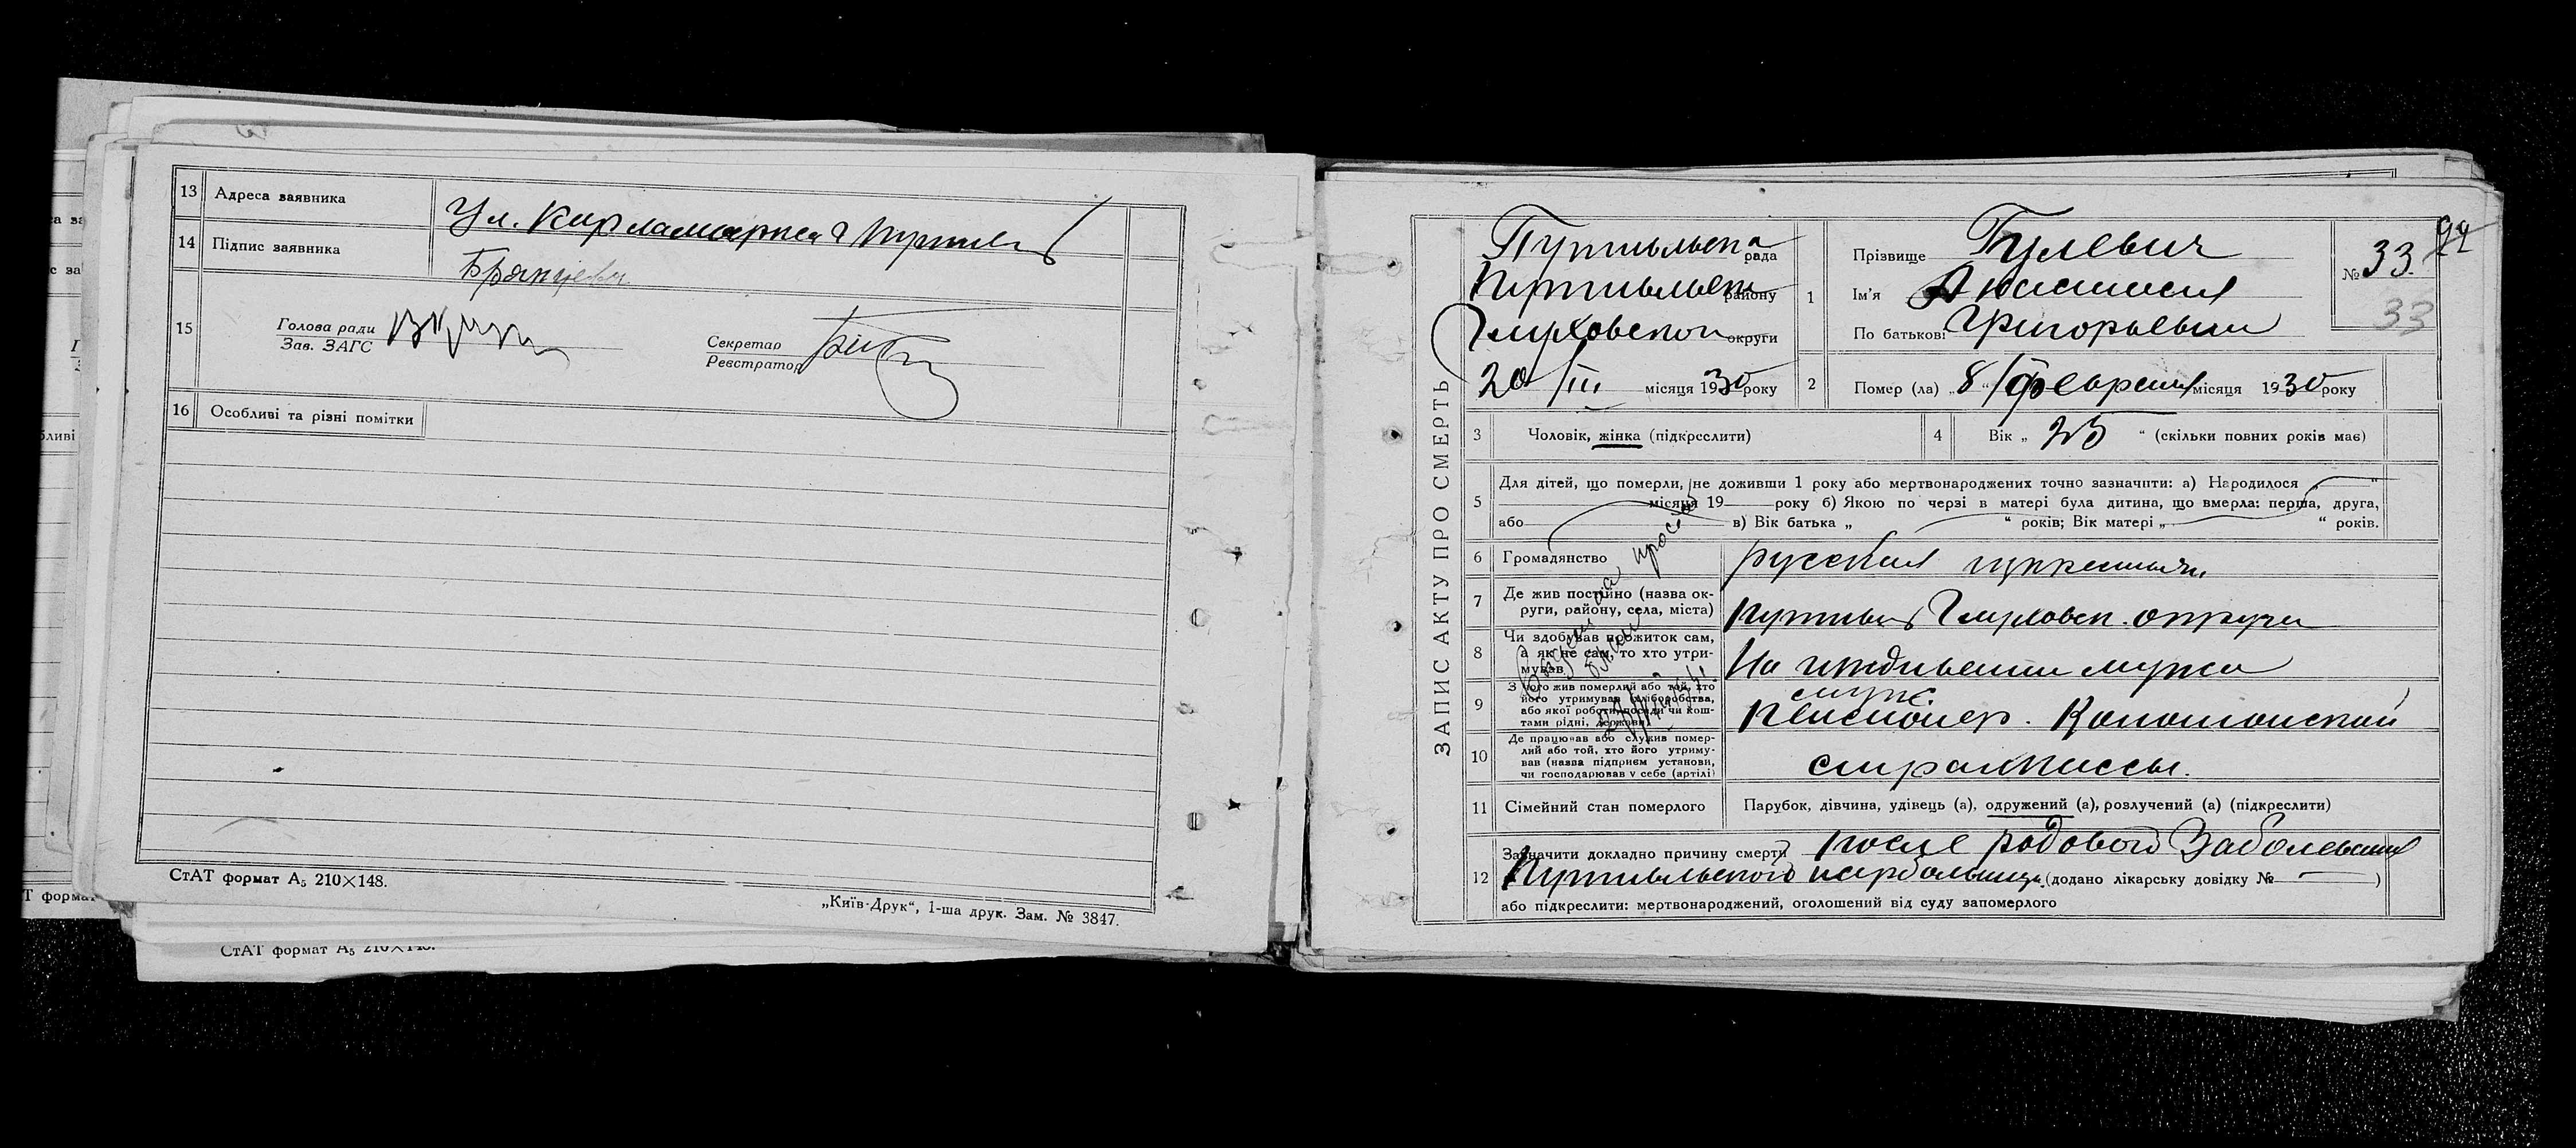 13 Адреса заявника Ул. Карламаркса г Путивль
14 Підпис заявника Брянцева
15 Голова ради
Зав. ЗАГС
Секретар
Реєстратор
16 Особливі та різні помітки
СтАТ формат А₅ 210×148.
„Київ-Друк“, 1-ша друк. Зам. № 3847.
СтАТ формат А₅ 210×148.
ЗАПИС АКТУ ПРО СМЕРТЬ
Путивльська рада
Путивльськ району
Глуховской округи
20/III місяця 1930 року
1 Прізвище Гулевич
Ім'я
По батькові Григорьевна
№ 33
33
2 Помер (ла) „8“ февраля місяця 1930 року
3 Чоловік, жінка (підкреслити)
4 Вік „ 25 “ (скільки повних років має)
5 Для дітей, що померли, не доживши 1 року або мертвонароджених точно зазначити: а) Народилося „ “
місяця 19 року б) Якою по черзі в матері була дитина, що вмерла: перша, друга,
або в) Вік батька „ “ років; Вік матері „ “ років.
6 Громадянство русская
7 Де жив постійно (назва ок-
руги, району, села, міста) Путивль Глуховск. округи
8 Чи здобував прожиток сам,
а як не сам, то хто утри-
мував На иждивении мужа
9 З чого жив померлий або той, хто
його утримував (хліборобства,
або якої роботи, посади чи кош-
тами рідні, держави) муж.
пенсионер. Конотопской
10 Де працював або служив помер-
лий або той, хто його утриму-
вав (назва підприєм установи,
чи господарював у себе (артілі) страхкассы.
11 Сімейний стан померлого Парубок, дівчина, удівець (а), одружений (а), розлучений (а) (підкреслити)
12 Зазначити докладно причину смерти после родового Заболевания
Путивльского (додано лікарську довідку № — )
або підкреслити: мертвонароджений, оголошений від суду запомерлого